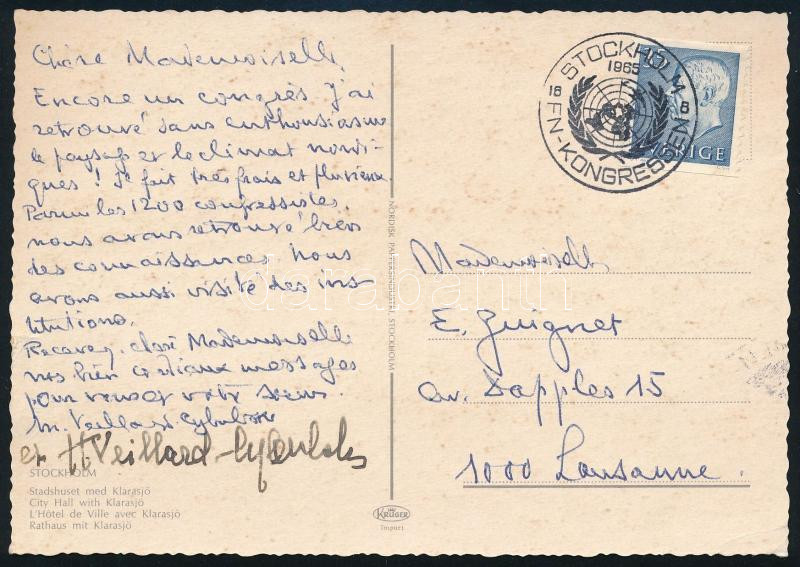 Chère Mademoiselle,
Encore un congrès. J'ai
retrouvé sans enthousiasme
le paysage et le climat nordi-
ques ! Il fait très frais et pluvieux
Parmi les 1200 congressistes,
nous avons retrouvé bien
des connaissances. Nous
avons aussi visité des ins-
titutions.
Recevez, chère Mademoiselle
nos bien cordiaux messages
pour vous et votre
M. Veillard-Cybulska
et H. Veillard-Cybulska
STOCKHOLM
Stadshuset med Klarasjö
City Hall with Klarasjö
L'Hôtel de Ville avec Klarasjö
Rathaus mit Klarasjö
NORDISK PAPPERSINDUSTRI, STOCKHOLM
KRÜGER
Import
STOCKHOLM
1965
18 8
FN-KONGRESSEN
SVERIGE
Mademoiselle
E. Guignet
av. Dapples 15
1000 Lausanne.
darabanth